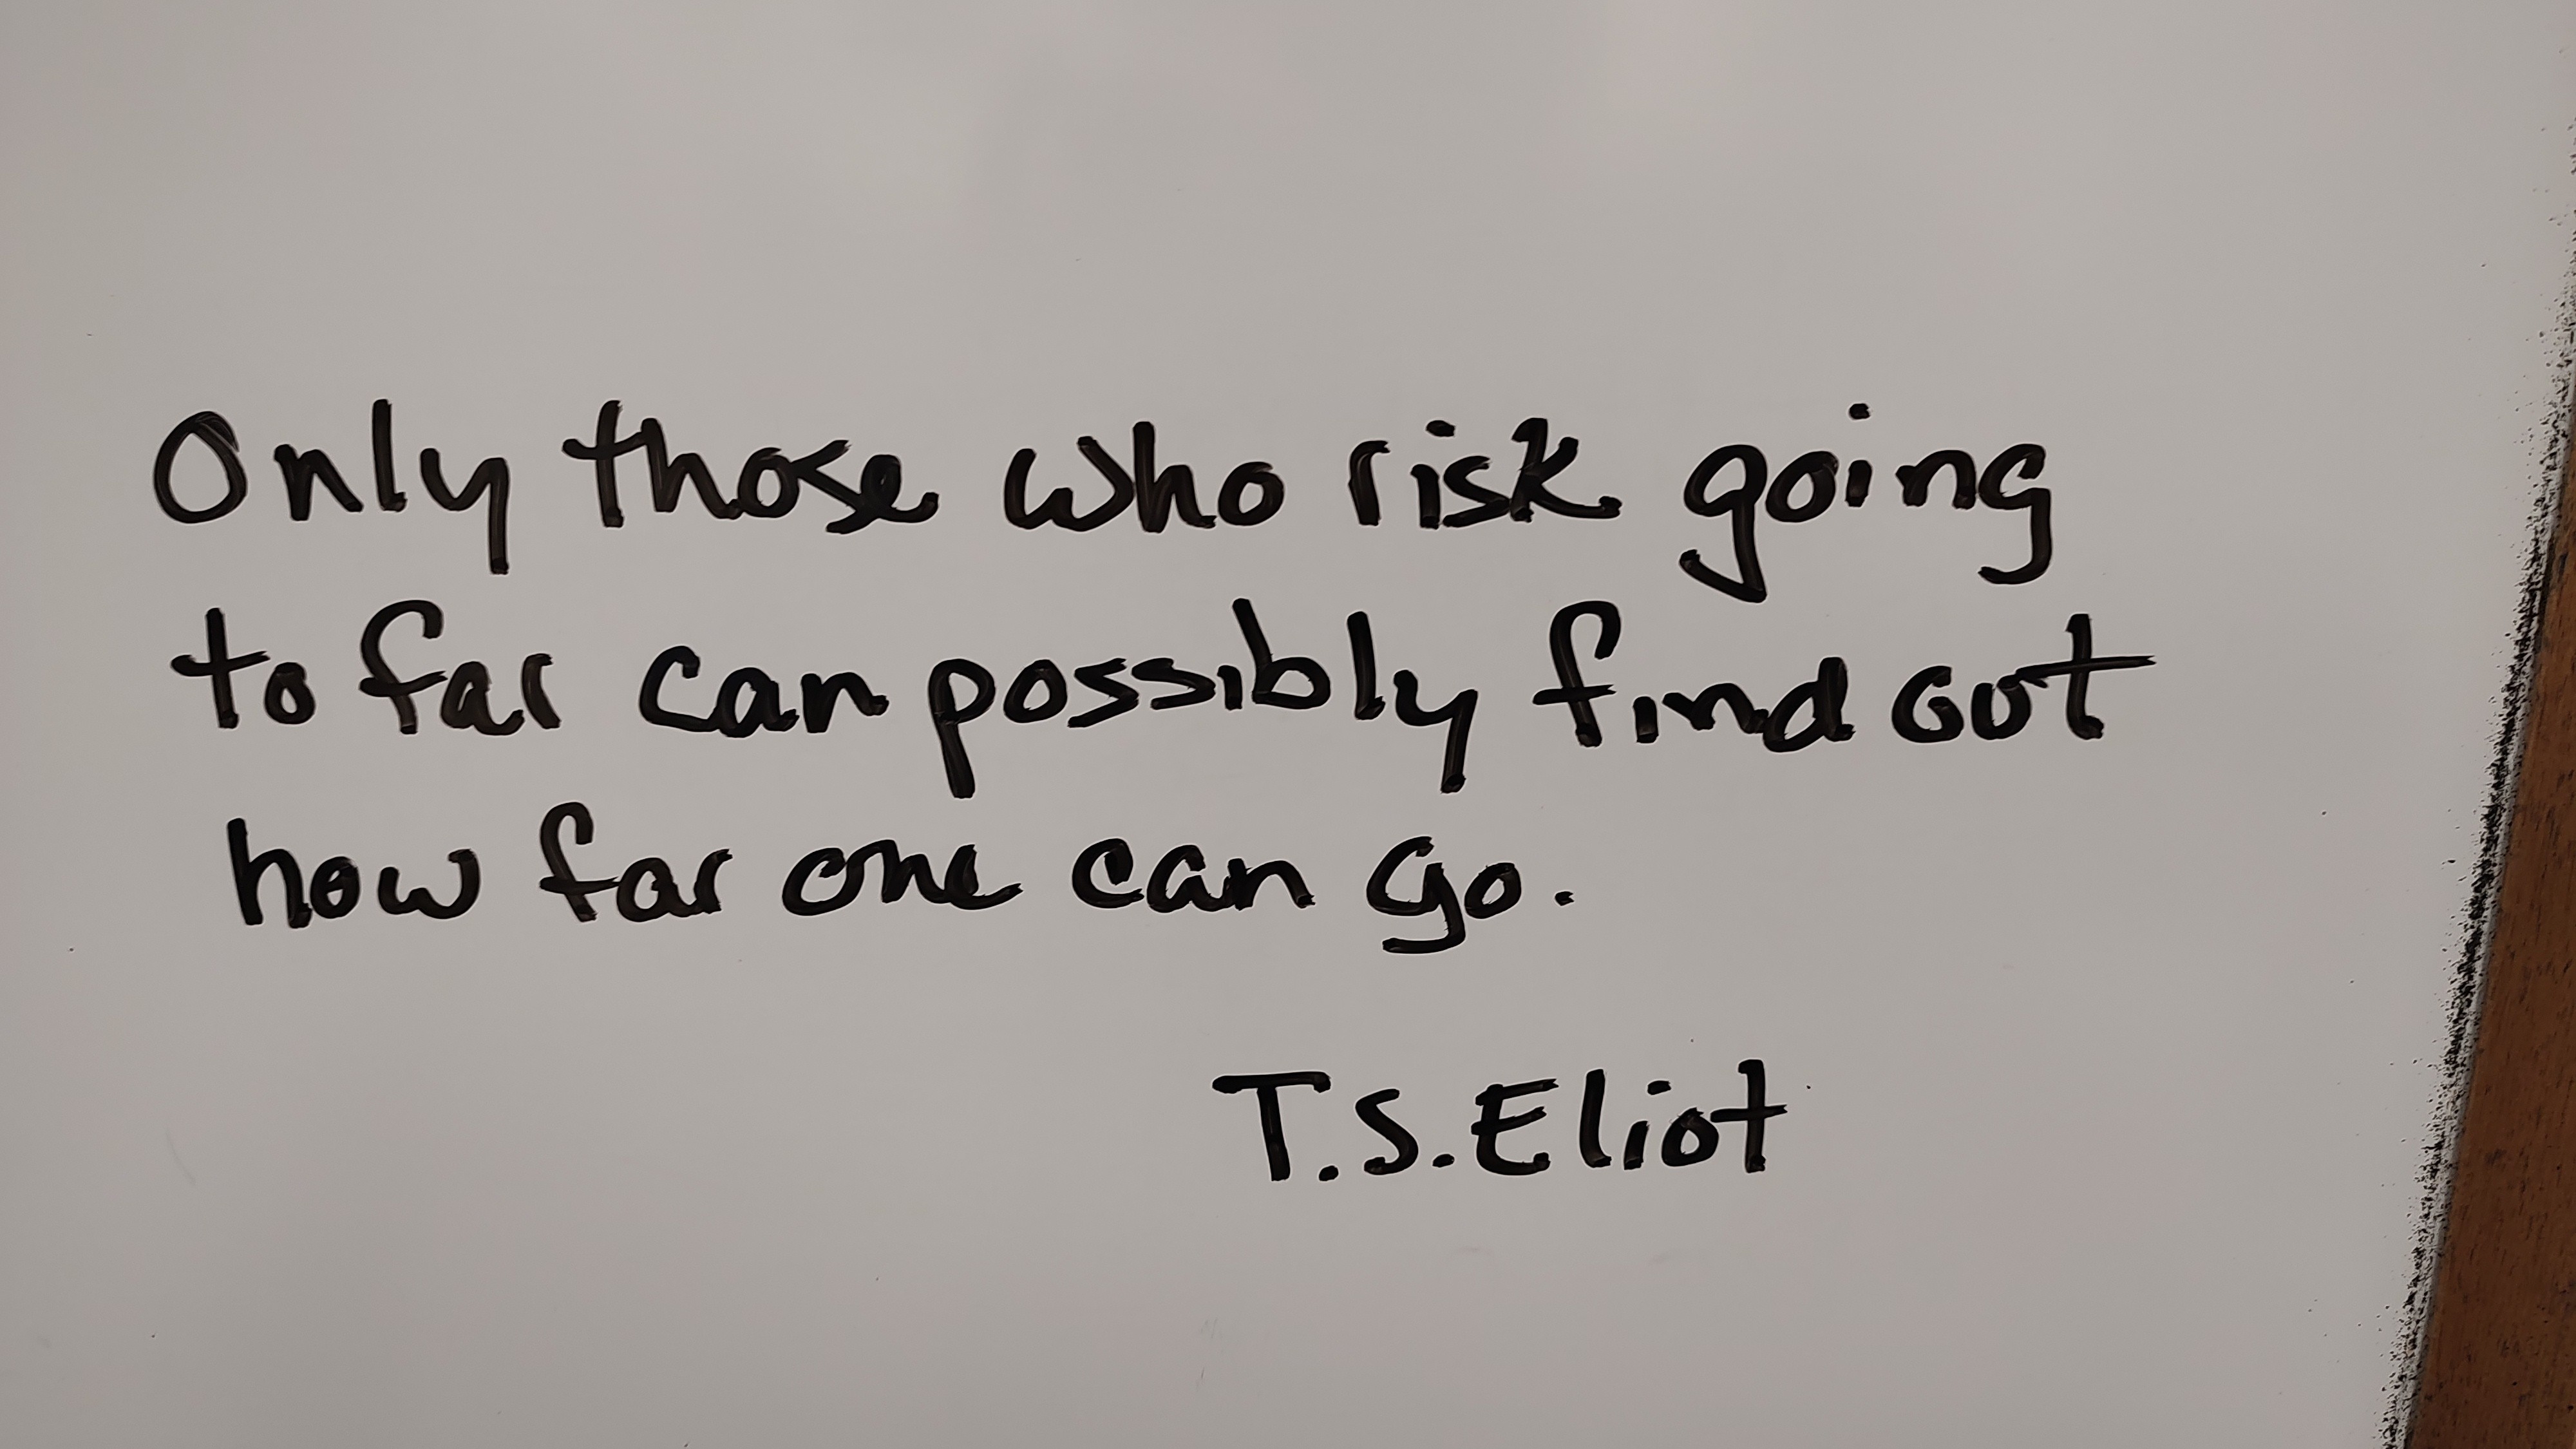 Only those who risk going
to far can possibly find out
how far one can go.
T.S. Eliot